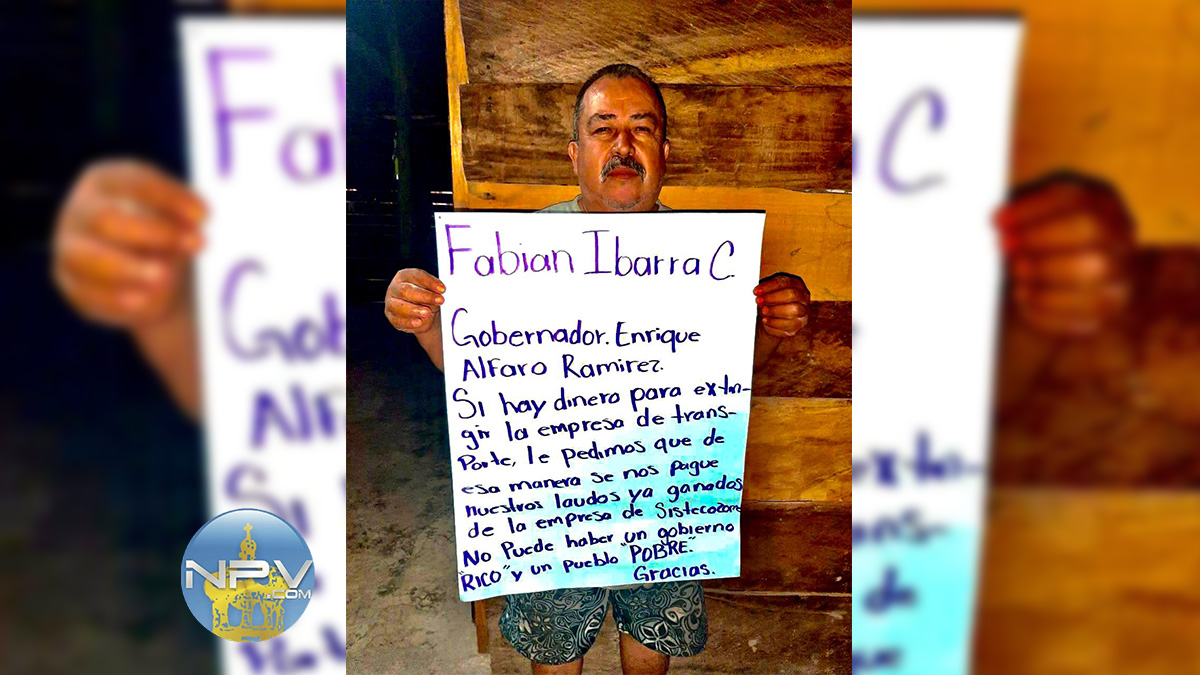 Fabian Ibarra C.
Gobernador. Enrique
Alfaro Ramirez.
Si hay dinero para extin-
gir la empresa de trans-
porte, le pedimos que de
esa manera se nos pague
nuestros laudos ya ganados
de la empresa de Sistecozome
No Puede haber un gobierno
"RICO" y un pueblo "POBRE".
Gracias.
NPV
.COM